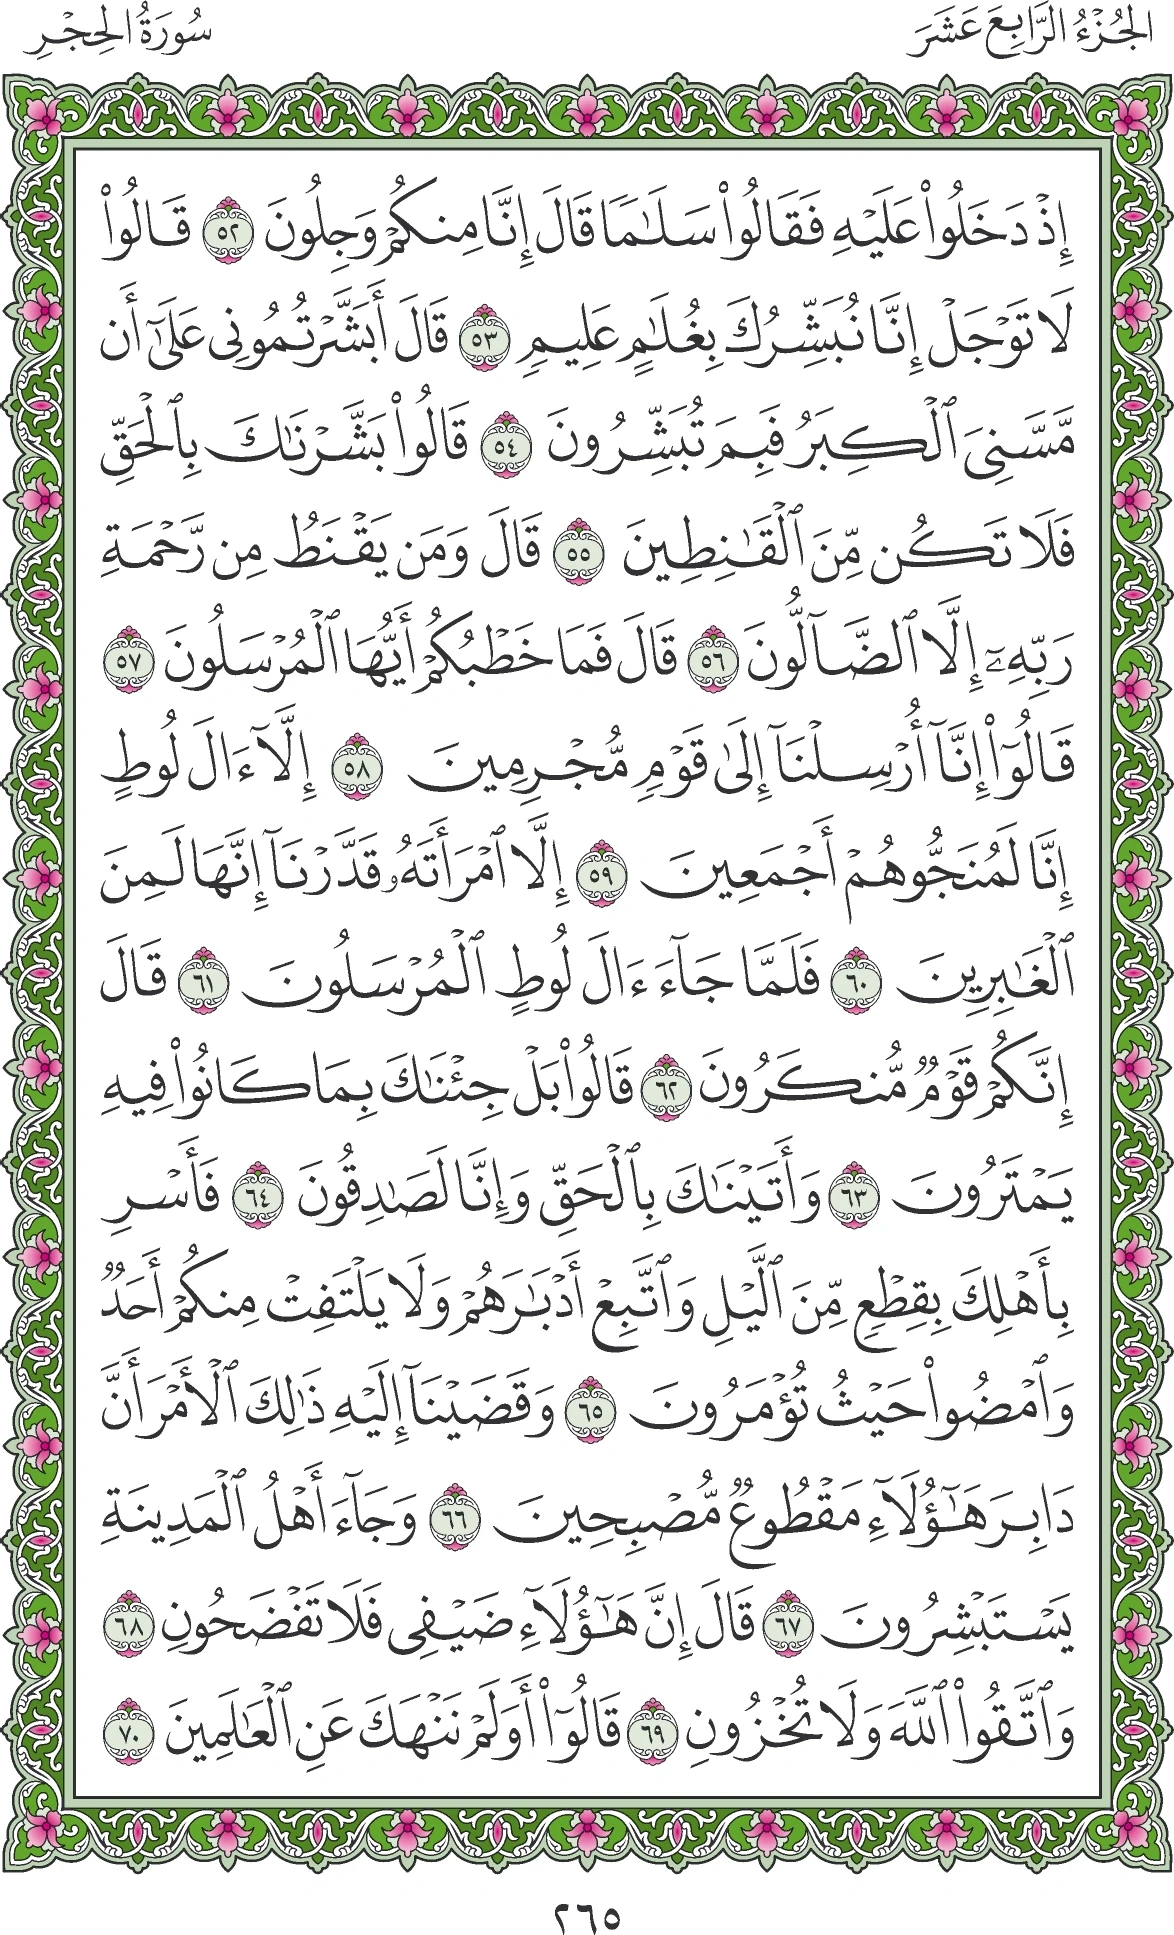 الجُزْءُ الرَّابِعَ عَشَرَ
سُورَةُ الحِجْرِ
إِذْ دَخَلُوا۟ عَلَيْهِ فَقَالُوا۟ سَلَٰمًا قَالَ إِنَّا مِنكُمْ وَجِلُونَ ٥٢ قَالُوا۟
لَا تَوْجَلْ إِنَّا نُبَشِّرُكَ بِغُلَٰمٍ عَلِيمٍ ٥٣ قَالَ أَبَشَّرْتُمُونِى عَلَىٰٓ أَن
مَّسَّنِىَ ٱلْكِبَرُ فَبِمَ تُبَشِّرُونَ ٥٤ قَالُوا۟ بَشَّرْنَٰكَ بِٱلْحَقِّ
فَلَا تَكُن مِّنَ ٱلْقَٰنِطِينَ ٥٥ قَالَ وَمَن يَقْنَطُ مِن رَّحْمَةِ
رَبِّهِۦٓ إِلَّا ٱلضَّآلُّونَ ٥٦ قَالَ فَمَا خَطْبُكُمْ أَيُّهَا ٱلْمُرْسَلُونَ ٥٧
قَالُوٓا۟ إِنَّآ أُرْسِلْنَآ إِلَىٰ قَوْمٍ مُّجْرِمِينَ ٥٨ إِلَّآ ءَالَ لُوطٍ
إِنَّا لَمُنَجُّوهُمْ أَجْمَعِينَ ٥٩ إِلَّا ٱمْرَأَتَهُۥ قَدَّرْنَآ إِنَّهَا لَمِنَ
ٱلْغَٰبِرِينَ ٦٠ فَلَمَّا جَآءَ ءَالَ لُوطٍ ٱلْمُرْسَلُونَ ٦١ قَالَ
إِنَّكُمْ قَوْمٌ مُّنكَرُونَ ٦٢ قَالُوا۟ بَلْ جِئْنَٰكَ بِمَا كَانُوا۟ فِيهِ
يَمْتَرُونَ ٦٣ وَأَتَيْنَٰكَ بِٱلْحَقِّ وَإِنَّا لَصَٰدِقُونَ ٦٤ فَأَسْرِ
بِأَهْلِكَ بِقِطْعٍ مِّنَ ٱلَّيْلِ وَٱتَّبِعْ أَدْبَٰرَهُمْ وَلَا يَلْتَفِتْ مِنكُمْ أَحَدٌ
وَٱمْضُوا۟ حَيْثُ تُؤْمَرُونَ ٦٥ وَقَضَيْنَآ إِلَيْهِ ذَٰلِكَ ٱلْأَمْرَ أَنَّ
دَابِرَ هَٰٓؤُلَآءِ مَقْطُوعٌ مُّصْبِحِينَ ٦٦ وَجَآءَ أَهْلُ ٱلْمَدِينَةِ
يَسْتَبْشِرُونَ ٦٧ قَالَ إِنَّ هَٰٓؤُلَآءِ ضَيْفِى فَلَا تَفْضَحُونِ ٦٨
وَٱتَّقُوا۟ ٱللَّهَ وَلَا تُخْزُونِ ٦٩ قَالُوٓا۟ أَوَلَمْ نَنْهَكَ عَنِ ٱلْعَٰلَمِينَ ٧٠
٢٦٥